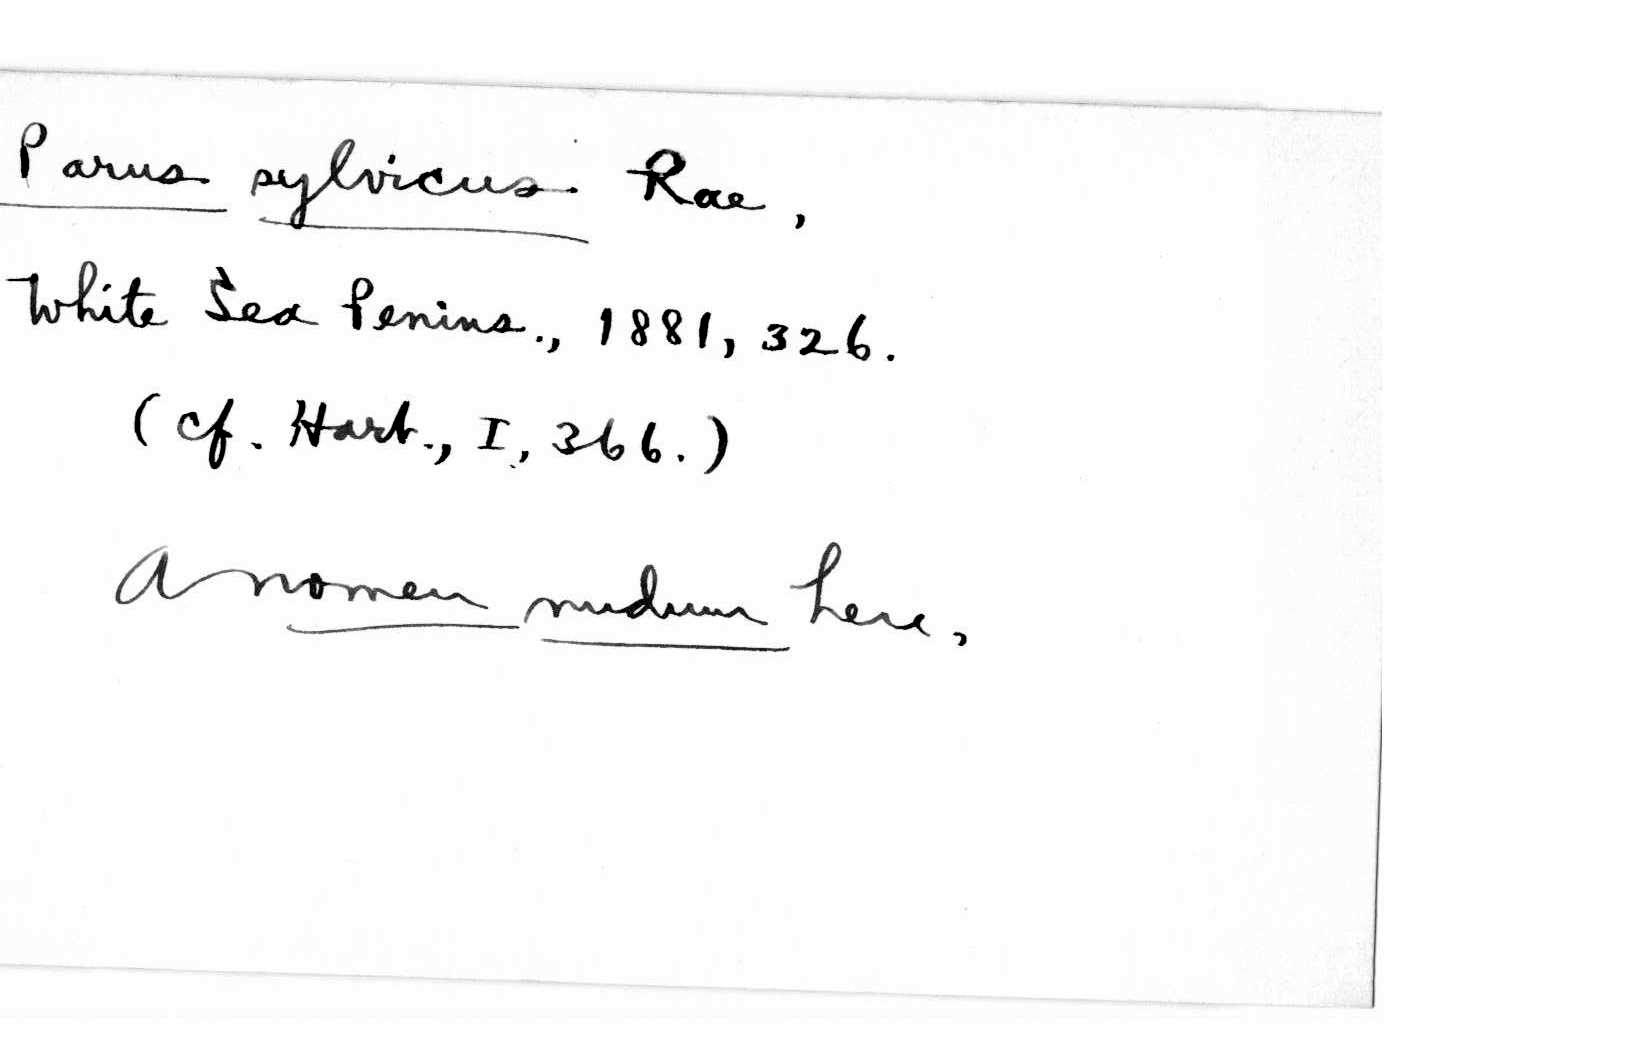 Parus sylvicus Rae,
White Sea Penins., 1881, 326.
(cf. Hart., I, 366.)
A nomen nudum here.